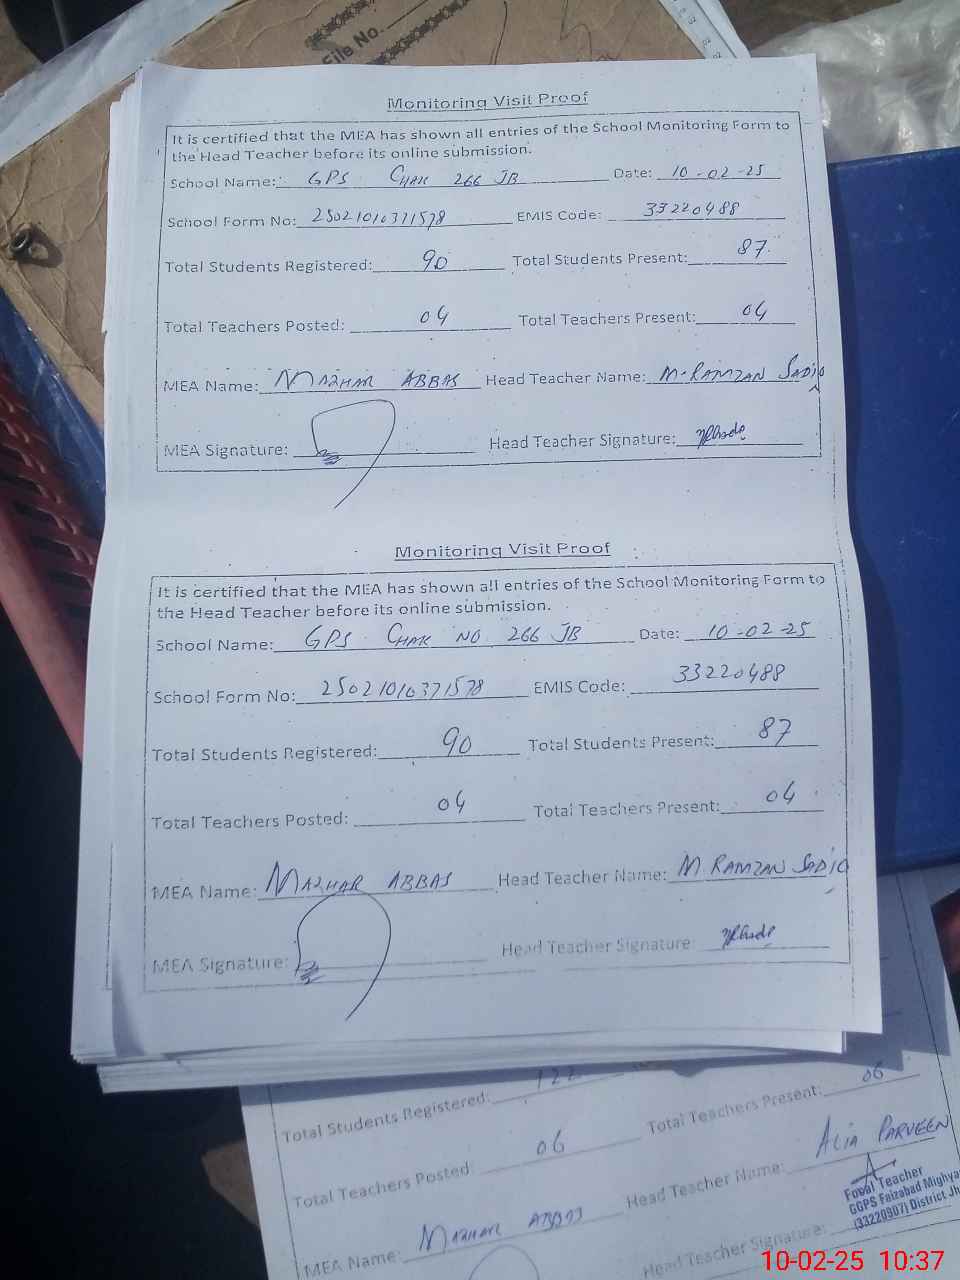 File No.
Monitoring Visit Proof
It is certified that the MEA has shown all entries of the School Monitoring Form to
the Head Teacher before its online submission.
School Name: GPS CHAK 266 JB Date: 10-02-25
School Form No: 25021010371578 EMIS Code: 33220488
Total Students Registered: 90 Total Students Present: 87
Total Teachers Posted: 04 Total Teachers Present: 04
MEA Name: MAZHAR ABBAS Head Teacher Name: M.RAMZAN SADIQ
MEA Signature: Head Teacher Signature:
Monitoring Visit Proof
It is certified that the MEA has shown all entries of the School Monitoring Form to
the Head Teacher before its online submission.
School Name: GPS CHAK NO 266 JB Date: 10-02-25
School Form No: 25021010371578 EMIS Code: 33220488
Total Students Registered: 90 Total Students Present: 87
Total Teachers Posted: 04 Total Teachers Present: 04
MEA Name: MAZHAR ABBAS Head Teacher Name: M.RAMZAN SADIQ
MEA Signature: Head Teacher Signature:
Total Students Registered: 122
Total Teachers Posted: 06 Total Teachers Present: 06
MEA Name: MAZHAR ABBAS Head Teacher Name: ALIA PARVEEN
Head Teacher Signature:
Teacher
GGPS Faizabad Mighya
(33220907) District Jh
10-02-25 10:37